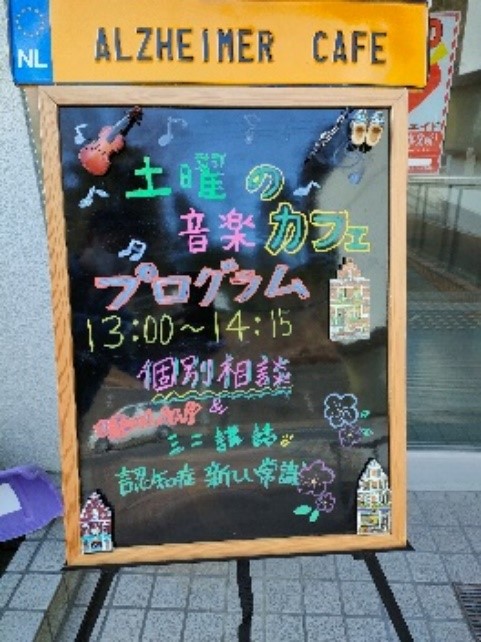 NL ALZHEIMER CAFE
土曜の
音楽カフェ
プログラム
13:00～14:15
個別相談
&
ミニ講話
認知症 新しい常識